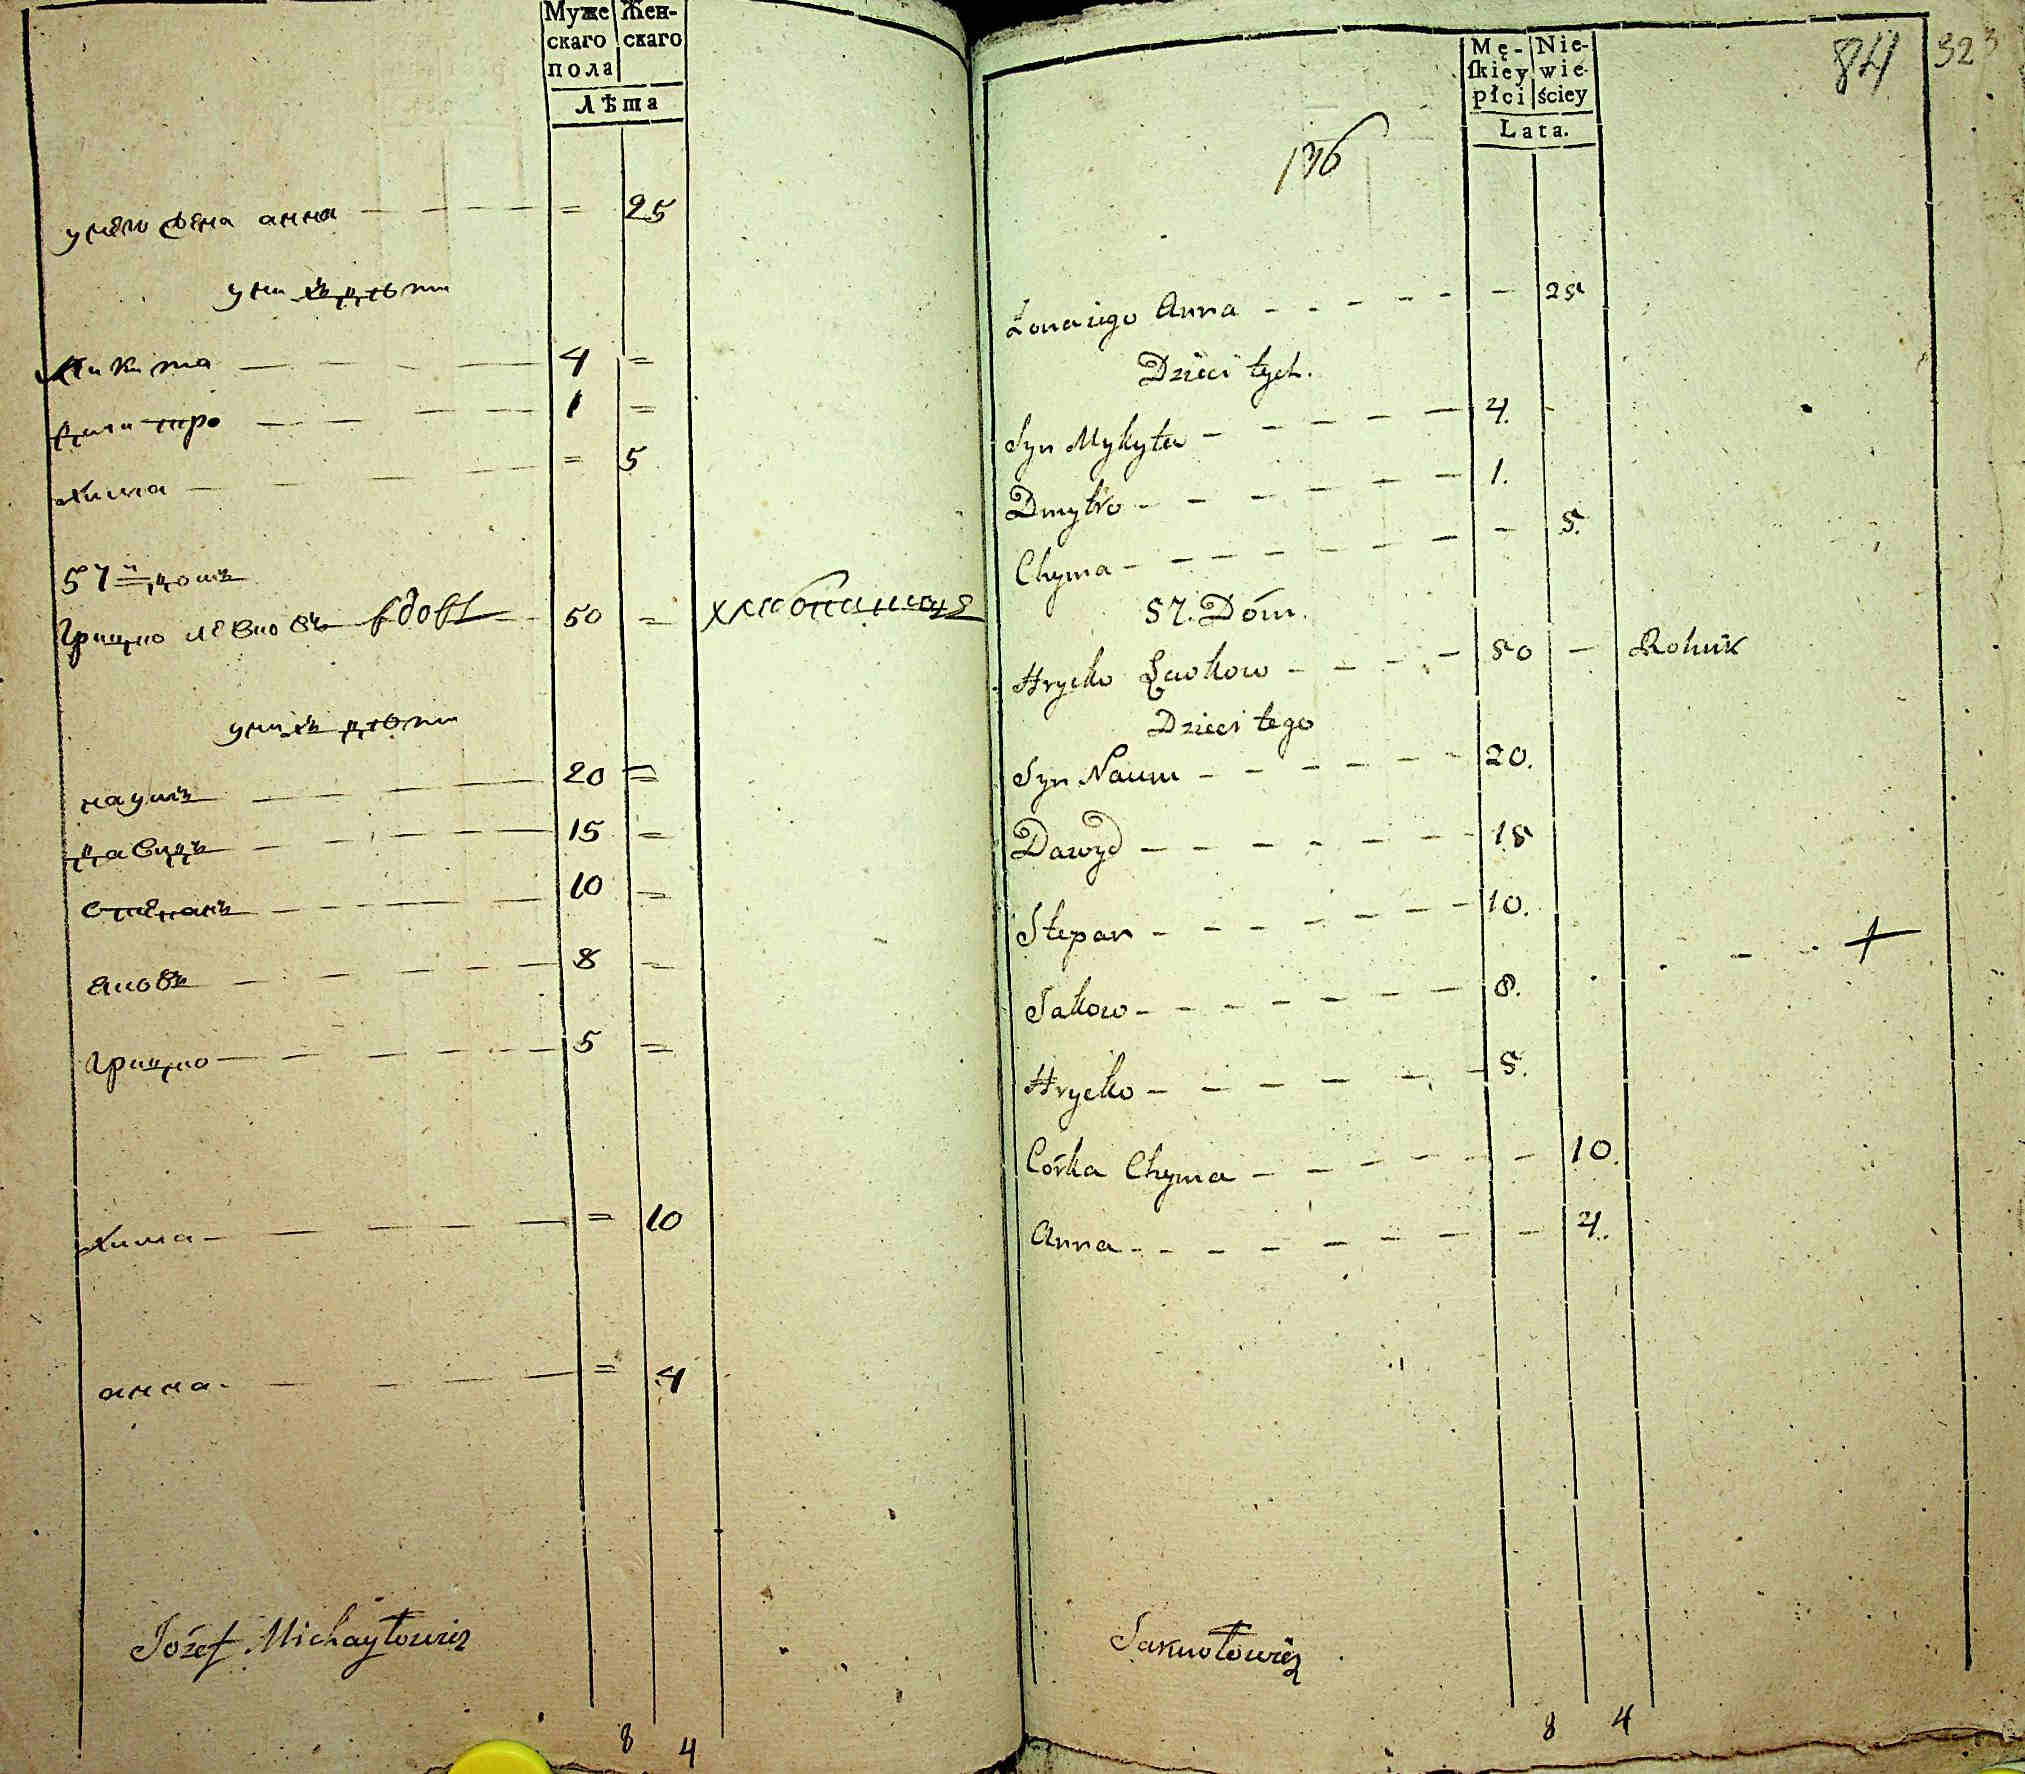 Муже Жен-
скаго скаго
пола
Лѣта
у него жена анна — — — — = 25
у нихъ дѣти
Микита — — — — 4 =
Дмитро — — — — 1 =
Хима — — — — = 5
57й домъ
Грицко левковъ вдовъ — 50 = хлебопашецъ
у нихъ дѣти
наумъ — — — — 20 =
давидъ — — — — 15 =
степанъ — — — — 10 =
яковъ — — — — 8 =
Грицко — — — — 5 =
Хима — — — — = 10
анна — — — — = 4
Józef Michayłowicz
8 4
84 323
Mę- Nie-
ſkiey wie-
płci ściey
Lata.
136
Żona iego Anna - - - - - - 25
Dzieci tych.
Syn Mykyta - - - - - 4. -
Dmytro - - - - - - 1.
Chyma - - - - - - - 5.
57. Dóm.
Hrycko Lewkow - - - - 50 - Rolnik
Dzieci tego
Syn Naum - - - - - 20.
Dawyd - - - - - - 15
Stepan - - - - - - 10.
Jakow - - - - - - 8.
Hrycko - - - - - - 5.
Córka Chyma - - - - - - 10.
Anna - - - - - - - 4.
8 4